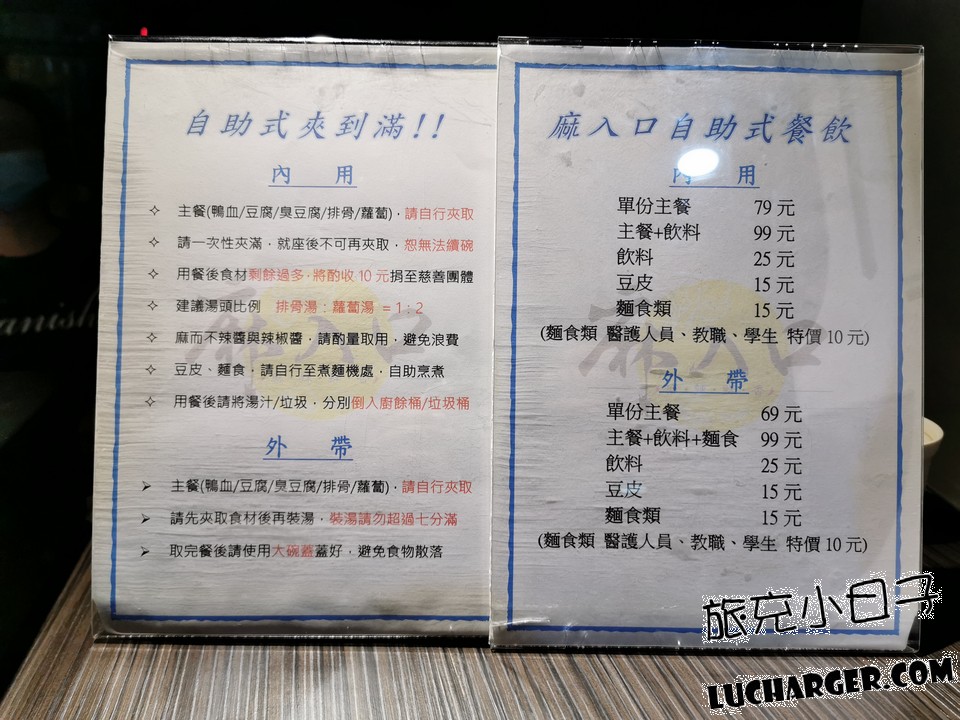 自助式夾到滿!!
內 用
✧ 主餐(鴨血/豆腐/臭豆腐/排骨/蘿蔔)，請自行夾取
✧ 請一次性夾滿，就座後不可再夾取，恕無法續碗
✧ 用餐後食材剩餘過多，將酌收 10 元捐至慈善團體
✧ 建議湯頭比例 排骨湯：蘿蔔湯 = 1：2
✧ 麻而不辣醬與辣椒醬，請酌量取用，避免浪費
✧ 豆皮、麵食，請自行至煮麵機處，自助烹煮
✧ 用餐後請將湯汁/垃圾，分別倒入廚餘桶/垃圾桶
外 帶
➢ 主餐(鴨血/豆腐/臭豆腐/排骨/蘿蔔)，請自行夾取
➢ 請先夾取食材後再裝湯，裝湯請勿超過七分滿
➢ 取完餐後請使用大碗蓋蓋好，避免食物散落
麻入口
麻入口自助式餐飲
內 用
單份主餐 79 元
主餐+飲料 99 元
飲料 25 元
豆皮 15 元
麵食類 15 元
(麵食類 醫護人員、教職、學生 特價 10 元)
外 帶
單份主餐 69 元
主餐+飲料+麵食 99 元
飲料 25 元
豆皮 15 元
麵食類 15 元
(麵食類 醫護人員、教職、學生 特價 10 元)
麻入口
旅充小日子
LUCHARGER.COM